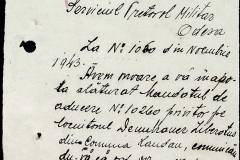 Serviciul Pretoral Militar
Odesa
La No 1060 din Noembrie
1943.
Avem onoare a vă înapo
ia alăturat Mandatul de
aducere No 10260 privitor pe
locuitorul Dennhauer Liboratus
din comuna Landau, comunicân
du-vă că